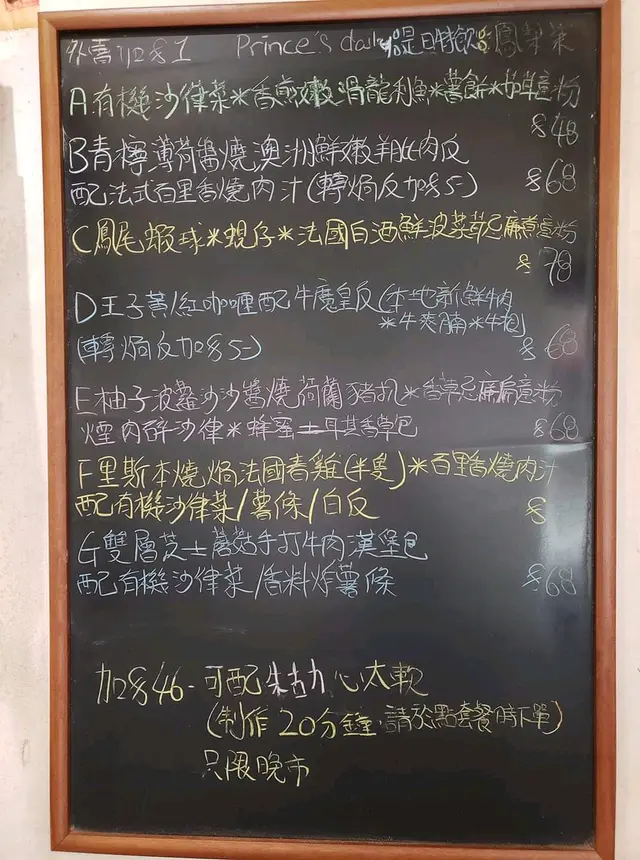 外賣加$1 Prince's daily 是日特飲:鳳梨茶
A.有機沙律菜*香煎嫩滑龍利魚*薯餅*甘草意粉
$48
B青檸薄荷醬燒澳洲鮮嫩羊扒肉反
配法式百里香燒肉汁(轉焗反加$5-) $68
C鳳尾蝦球*蜆仔*法國白酒鮮波菜忌廉煮意粉
$78
D王子黃/紅咖喱配牛魔皇反(本地新鮮牛肉
*牛爽腩*牛孖)
(轉焗反加$5-) $68
E柚子波蘿沙沙醬燒荷蘭豬扒*香草忌廉扁意粉
煙肉碎沙律*蜂蜜土耳其香草包 $68
F里斯本燒焗法國春雞(半隻)*百里香燒肉汁
配有機沙律菜/薯條/白反 $
G雙層芝士蘑菇手打牛肉漢堡包
配有機沙律菜/香料炸薯條 $68
加$46-可配朱古力心太軟
(制作20分鐘,請於點套餐時下單)
只限晚市